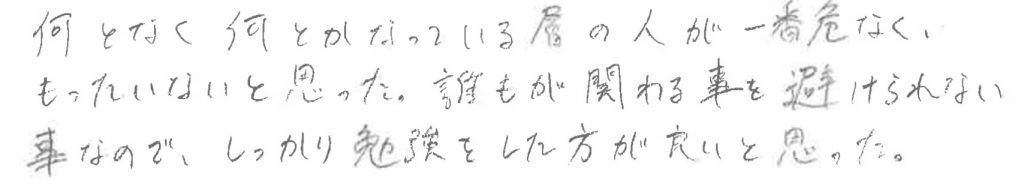 何となく何とかなっている層の人が一番危なく、
もったいないと思った。誰もが関わる事を避けられない
事なので、しっかり勉強をした方が良いと思った。